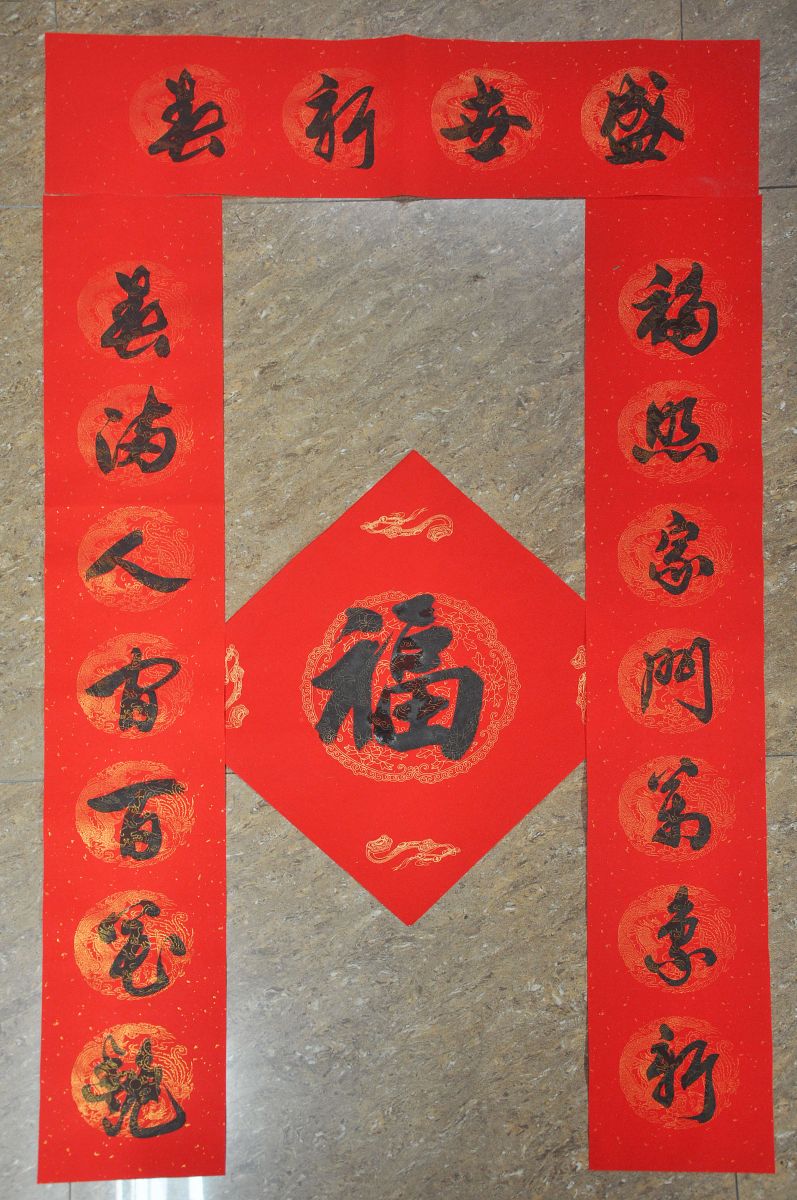 盛世新春
福照家門萬象新
春滿人間百花艷
福